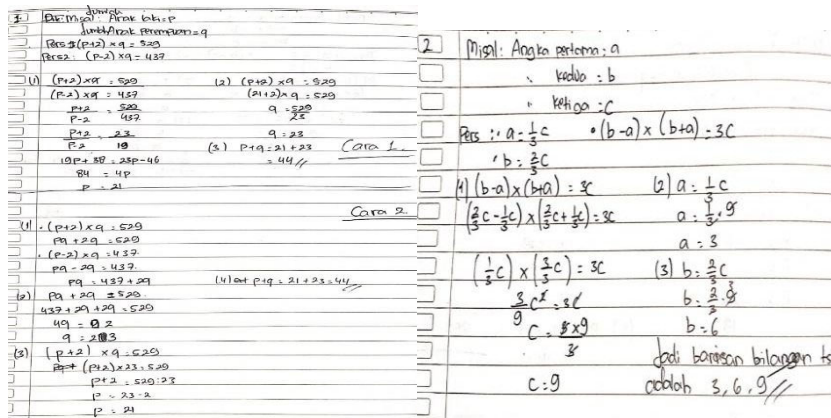 1. Misal: Jumlah Anak laki = p
Jumlah Anak perempuan = q
Pers 1: (p+2) × q = 529
Pers 2: (p-2) × q = 437
(1) (p+2) × q = 529
(p-2) × q = 437
p+2 / p-2 = 529 / 437
p+2 / p-2 = 23 / 19
19p + 38 = 23p - 46
84 = 4p
p = 21
(2) (p+2) × q = 529
(21+2) × q = 529
q = 529 / 23
q = 23
(3) p+q = 21 + 23
= 44 //
Cara 1.
Cara 2
(1) • (p+2) × q = 529
pq + 2q = 529
• (p-2) × q = 437
pq - 2q = 437.
pq = 437 + 2q
(2) pq + 2q = 529.
437 + 2q + 2q = 529
4q = 92
q = 23
(3) (p+2) × q = 529
(p+2) × 23 = 529
p+2 = 529 : 23
p = 23 - 2
p = 21
(4) p+q = 21 + 23 = 44 //
2 Misal : Angka pertama : a
" kedua : b
" ketiga : c
Pers : • a = 1/3 c • (b-a) × (b+a) = 3c
• b = 2/3 c
(1) (b-a) × (b+a) = 3c
(2/3 c - 1/3 c) × (2/3 c + 1/3 c) = 3c
(1/3 c) × (3/3 c) = 3c
3/9 c² = 3c
c = 3×9 / 3
c = 9
(2) a = 1/3 c
a = 1/3 . 9
a = 3
(3) b = 2/3 c
b = 2/3 . 9 3
b = 6
Jadi barisan bilangan ts
adalah 3, 6, 9 //